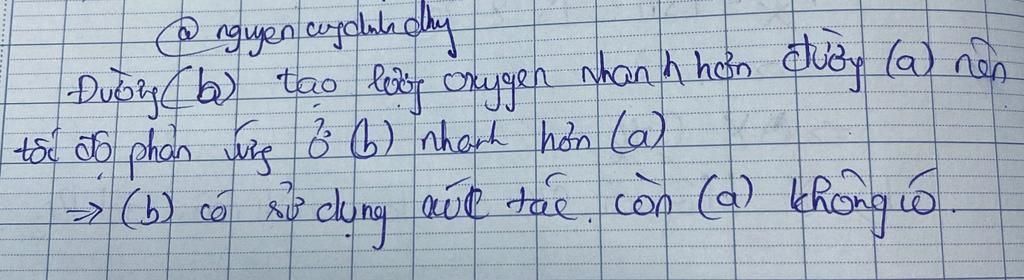 @ nguyencuydinhdhy
Đường (b) tạo lượng oxygen nhanh hơn đường (a) nên
tốc độ phản ứng ở (b) nhanh hơn (a)
=> (b) có sử dụng xúc tác. còn (a) không có.